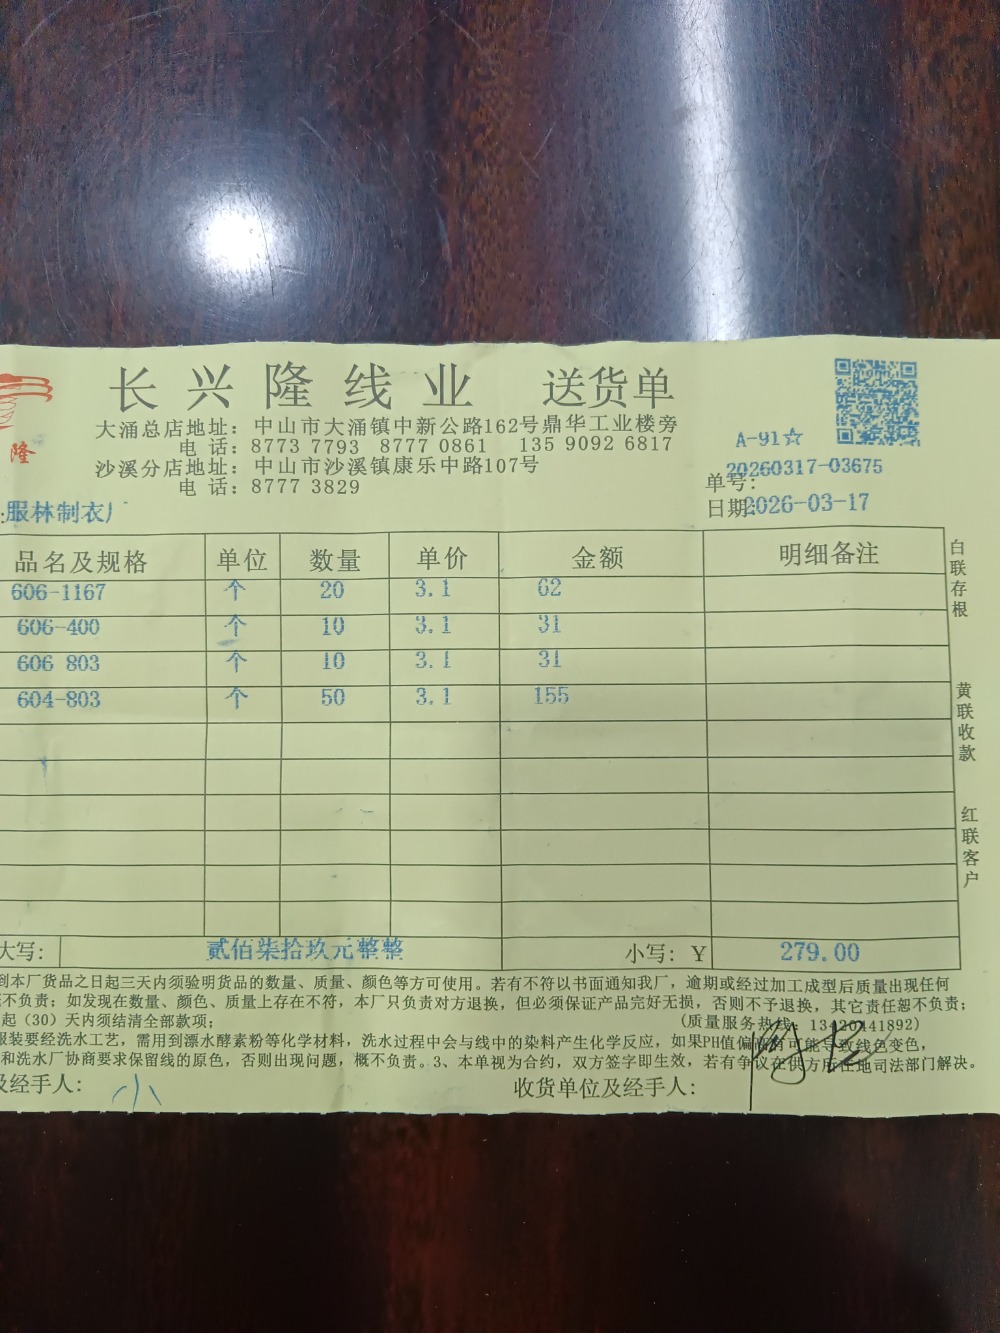 长兴隆线业 送货单
隆
大涌总店地址：中山市大涌镇中新公路162号鼎华工业楼旁
电 话：8773 7793 8777 0861 135 9092 6817
沙溪分店地址：中山市沙溪镇康乐中路107号
电 话：8777 3829
A-91☆
单号：20260317-03675
日期：2026-03-17
：服林制衣厂
品名及规格 单位 数量 单价 金额 明细备注
606-1167 个 20 3.1 62
606-400 个 10 3.1 31
606 803 个 10 3.1 31
604-803 个 50 3.1 155
大写： 贰佰柒拾玖元整整 小写：￥ 279.00
白联存根
黄联收款
红联客户
到本厂货品之日起三天内须验明货品的数量、质量、颜色等方可使用。若有不符以书面通知我厂，逾期或经过加工成型后质量出现任何
不负责；如发现在数量、颜色、质量上存在不符，本厂只负责对方退换，但必须保证产品完好无损，否则不予退换，其它责任恕不负责；
起（30）天内须结清全部款项； (质量服务热线：13420441892)
服装要经洗水工艺，需用到漂水酵素粉等化学材料，洗水过程中会与线中的染料产生化学反应，如果PH值偏高有可能导致线色变色，
和洗水厂协商要求保留线的原色，否则出现问题，概不负责。3、本单视为合约，双方签字即生效，若有争议在供方所在地司法部门解决。
及经手人： 小 收货单位及经手人：